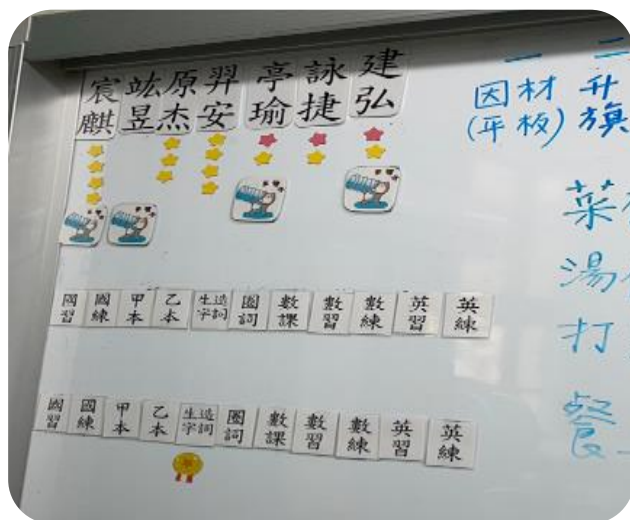 宸麒 竑昱 原杰 羿安 亭瑜 詠捷 建弘
一 二
因材 升
(平板) 旗
菜
湯
打
餐
國習 國練 甲本 乙本 生字造詞 圈詞 數課 數習 數練 英習 英練
國習 國練 甲本 乙本 生字造詞 圈詞 數課 數習 數練 英習 英練